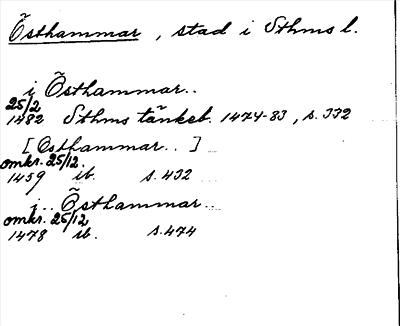 Östhammar, stad i Sthms l.
i Östhammar..
25/2
1482 Sthms tänkeb. 1474-83, s. 332
[Osthammar..]
omkr. 25/12.
1459 ib. s. 432
i.. Östhammar..
omkr. 25/12
1478 ib. s. 474